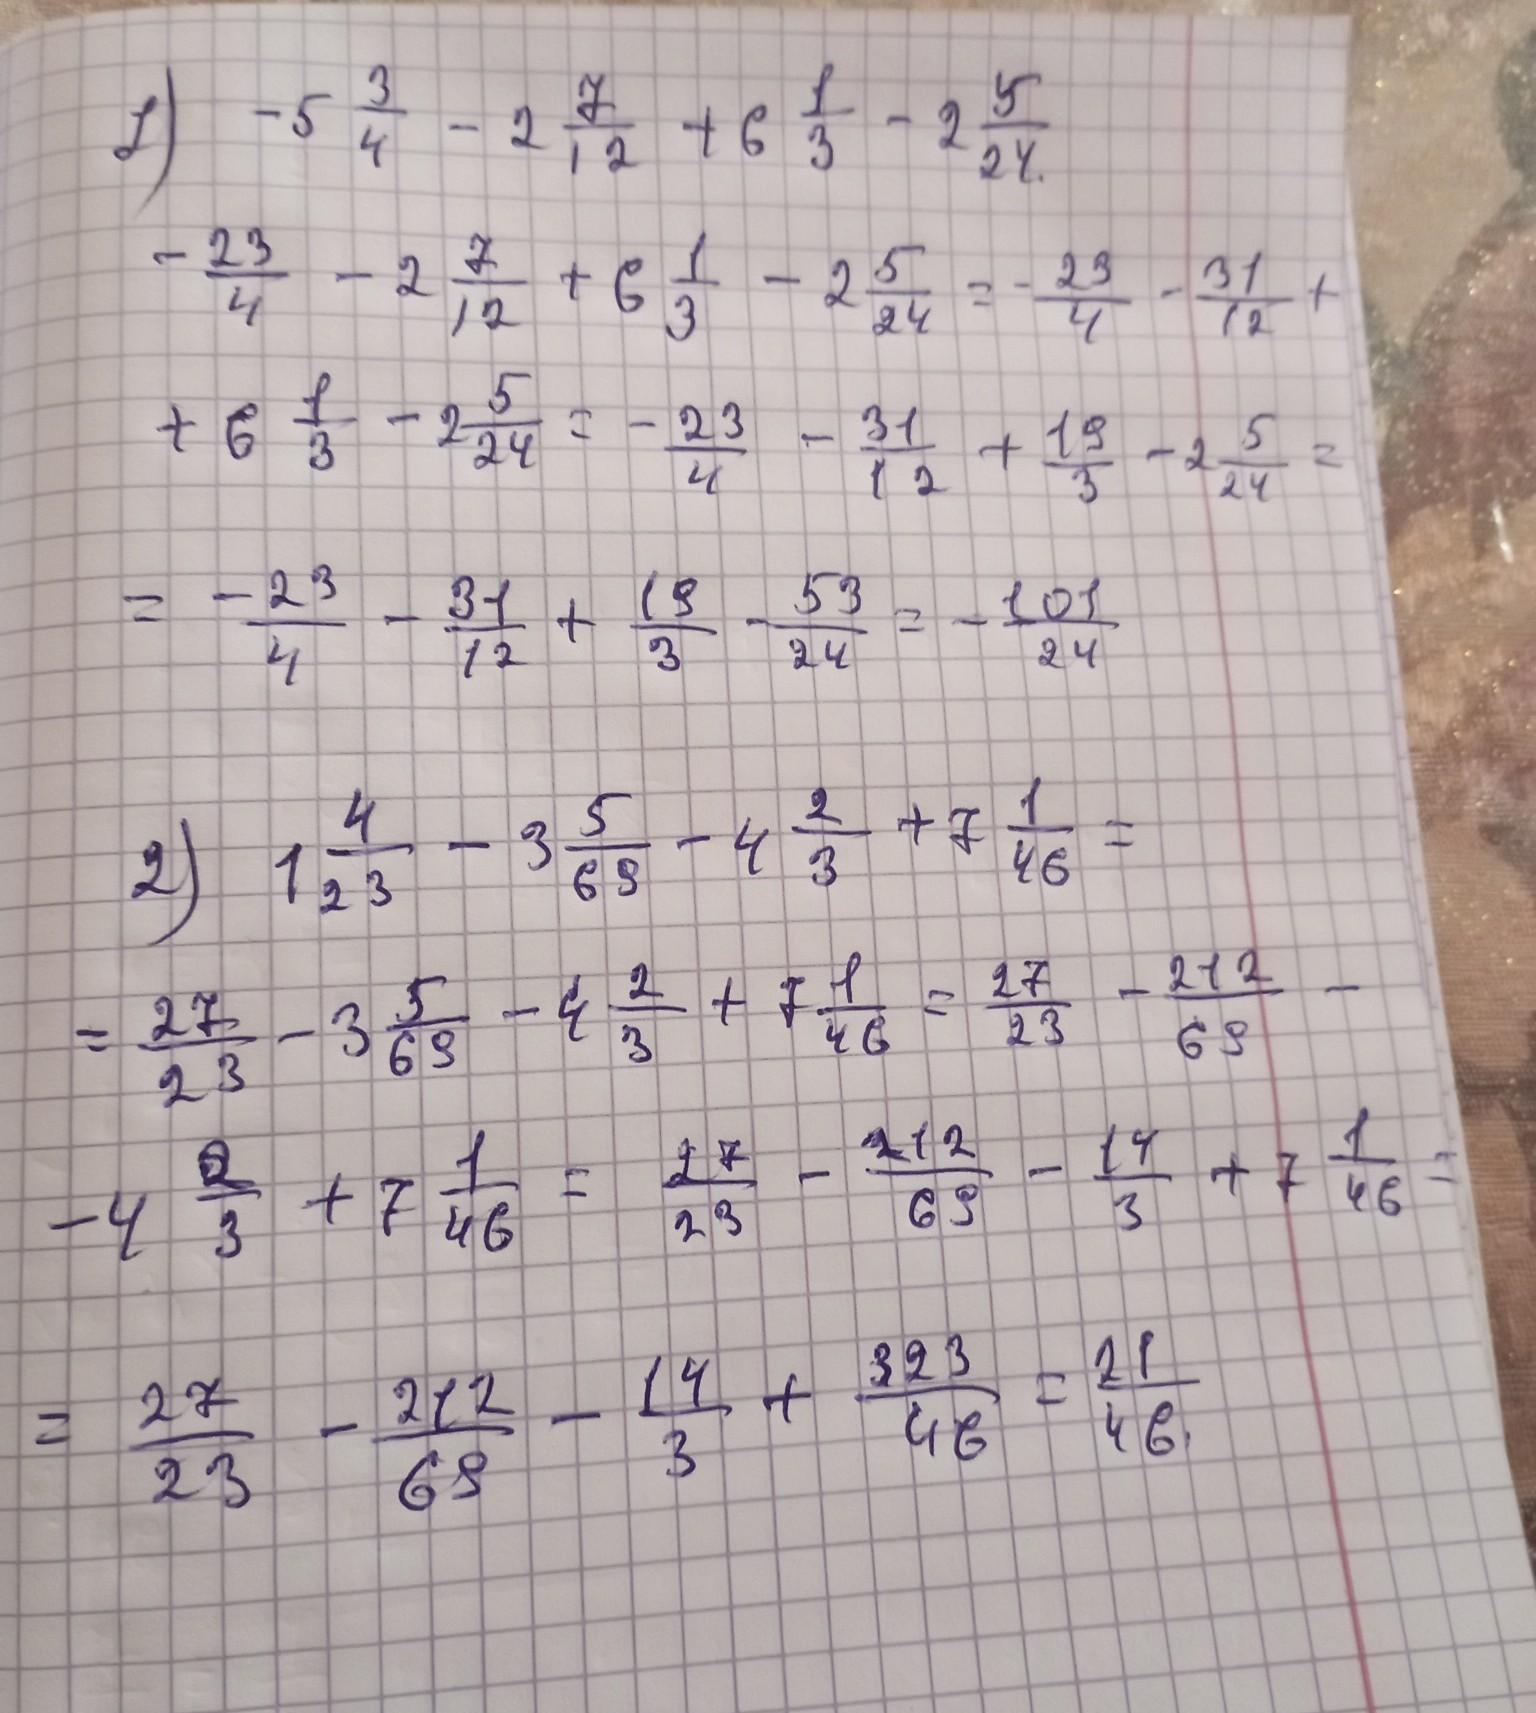 1) -5 3/4 - 2 7/12 + 6 1/3 - 2 5/24.
-23/4 - 2 7/12 + 6 1/3 - 2 5/24 = -23/4 - 31/12 +
+ 6 1/3 - 2 5/24 = -23/4 - 31/12 + 19/3 - 2 5/24 =
= -23/4 - 31/12 + 19/3 - 53/24 = -101/24
2) 1 4/23 - 3 5/69 - 4 2/3 + 7 1/46 =
= 27/23 - 3 5/69 - 4 2/3 + 7 1/46 = 27/23 - 212/69 -
- 4 2/3 + 7 1/46 = 27/23 - 212/69 - 14/3 + 7 1/46 =
= 27/23 - 212/69 - 14/3 + 323/46 = 21/46.